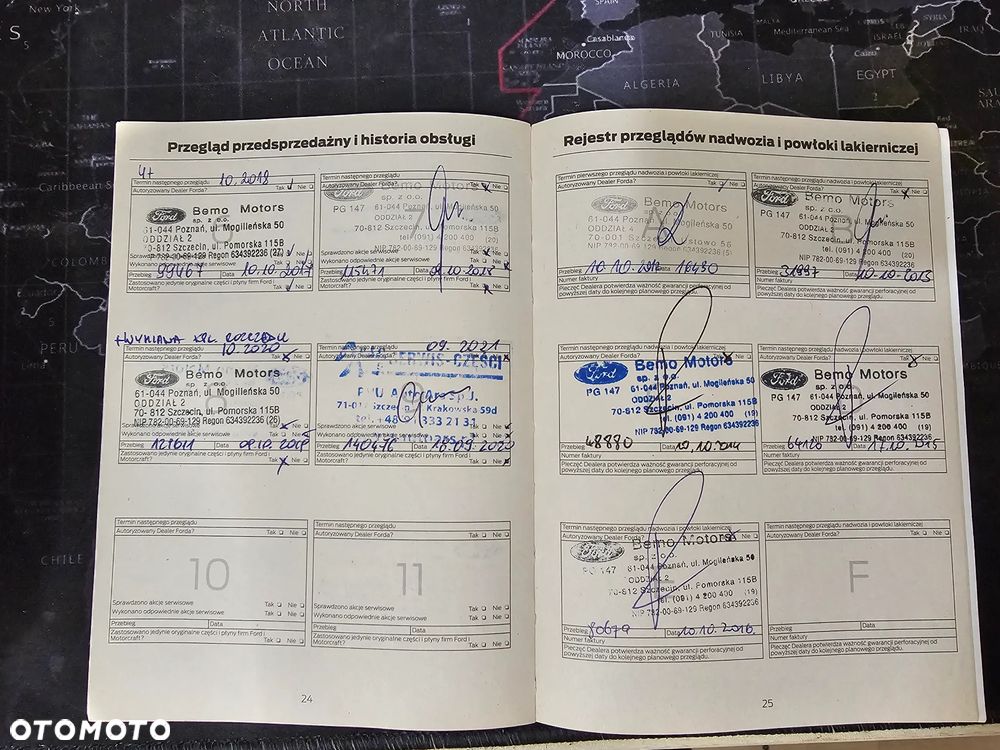 New York
NORTH
ATLANTIC
OCEAN
SPAIN
Casablanca
MOROCCO
ALGERIA
TUNISIA
Mediterranean Sea
LIBYA
Cairo
EGYPT
ISRAEL
SYRIA
IRAQ
Caribbean Sea
PERU
CHILE
Przegląd przedsprzedażny i historia obsługi
Termin następnego przeglądu 10.2018
Autoryzowany Dealer Forda? Tak Nie
Ford
Bemo Motors
sp. z o.o.
61-044 Poznań, ul. Mogileńska 50
ODDZIAŁ 2
70-812 Szczecin, ul. Pomorska 115B
NIP 782-00-69-129 Regon 634392236
Przebieg 99467 Data 10.10.2017
Zastosowano jedynie oryginalne części i płyny firm Ford i
Motorcraft? Tak Nie
Termin następnego przeglądu
Autoryzowany Dealer Forda? Tak Nie
Ford
Bemo Motors
sp. z o.o.
PG 147
61-044 Poznań, ul. Mogileńska 50
ODDZIAŁ 2
70-812 Szczecin, ul. Pomorska 115B
tel. (091) 4 200 400 (20)
NIP 782-00-69-129 Regon 634392236
Sprawdzono akcje serwisowe Tak Nie
Wykonano odpowiednie akcje serwisowe Tak Nie
Przebieg 115471 Data
Zastosowano jedynie oryginalne części i płyny firm Ford i
Motorcraft? Tak Nie
+WYMIANA
Termin następnego przeglądu 10.2020
Autoryzowany Dealer Forda? Tak Nie
Ford
Bemo Motors
sp. z o.o.
61-044 Poznań, ul. Mogileńska 50
ODDZIAŁ 2
70-812 Szczecin, ul. Pomorska 115B
NIP 782-00-69-129 Regon 634392236
Sprawdzono akcje serwisowe Tak Nie
Wykonano odpowiednie akcje serwisowe Tak Nie
Przebieg 127611 Data 09.10.2019
Zastosowano jedynie oryginalne części i płyny firm Ford i
Motorcraft? Tak Nie
09.2021
SERWIS-CZĘŚCI
Krakowska 59d
Przebieg 140476 Data 28.09.2020
Zastosowano jedynie oryginalne części i płyny firm Ford i
Motorcraft? Tak Nie
Termin następnego przeglądu
Autoryzowany Dealer Forda? Tak Nie
10
Sprawdzono akcje serwisowe Tak Nie
Wykonano odpowiednie akcje serwisowe Tak Nie
Przebieg Data
Zastosowano jedynie oryginalne części i płyny firm Ford i
Motorcraft? Tak Nie
Termin następnego przeglądu
Autoryzowany Dealer Forda? Tak Nie
11
Sprawdzono akcje serwisowe Tak Nie
Wykonano odpowiednie akcje serwisowe Tak Nie
Przebieg Data
Zastosowano jedynie oryginalne części i płyny firm Ford i
Motorcraft? Tak Nie
24
Rejestr przeglądów nadwozia i powłoki lakierniczej
Termin pierwszego przeglądu nadwozia i powłoki lakierniczej
Autoryzowany Dealer Forda? Tak Nie
Ford
A
Przebieg Data 16450
Numer faktury
Pieczęć Dealera potwierdza ważność gwarancji perforacyjnej od
powyższej daty do kolejnego planowego przeglądu.
Termin następnego przeglądu nadwozia i powłoki lakierniczej
Autoryzowany Dealer Forda? Tak Nie
Ford
B
Bemo Motors
sp. z o.o.
PG 147
61-044 Poznań, ul. Mogileńska 50
ODDZIAŁ 2
70-812 Szczecin, ul. Pomorska 115B
tel. (091) 4 200 400
NIP 782-00-69-129 Regon 634392236
Przebieg 31997 Data 10.10.2013
Numer faktury
Pieczęć Dealera potwierdza ważność gwarancji perforacyjnej od
powyższej daty do kolejnego planowego przeglądu.
Termin następnego przeglądu nadwozia i powłoki lakierniczej
Ford
Bemo Motors
sp. z o.o.
PG 147
61-044 Poznań, ul. Mogileńska 50
ODDZIAŁ 2
70-812 Szczecin, ul. Pomorska 115B
tel. (091) 4 200 400 (19)
NIP 782-00-69-129 Regon 634392236
Przebieg 48880 Data 10.10.2014
Numer faktury
Pieczęć Dealera potwierdza ważność gwarancji perforacyjnej od
powyższej daty do kolejnego planowego przeglądu.
Termin następnego przeglądu nadwozia i powłoki lakierniczej
Autoryzowany Dealer Forda? Tak Nie
Ford
Bemo Motors
sp. z o.o.
PG 147
61-044 Poznań, ul. Mogileńska 50
ODDZIAŁ 2
70-812 Szczecin, ul. Pomorska 115B
tel. (091) 4 200 400 (19)
NIP 782-00-69-129 Regon 634392236
Przebieg 64120 Data 17.10.2015
Numer faktury
Pieczęć Dealera potwierdza ważność gwarancji perforacyjnej od
powyższej daty do kolejnego planowego przeglądu.
Termin następnego przeglądu nadwozia i powłoki lakierniczej
Autoryzowany Dealer Forda? Tak Nie
Ford
Bemo Motors
sp. z o.o.
PG 147
61-044 Poznań, ul. Mogileńska 50
ODDZIAŁ 2
70-812 Szczecin, ul. Pomorska 115B
tel. (091) 4 200 400 (19)
NIP 782-00-69-129 Regon 634392236
Przebieg 80679 Data 10.10.2016.
Numer faktury
Pieczęć Dealera potwierdza ważność gwarancji perforacyjnej od
powyższej daty do kolejnego planowego przeglądu.
Termin następnego przeglądu nadwozia i powłoki lakierniczej
Autoryzowany Dealer Forda? Tak Nie
F
Przebieg Data
Numer faktury
Pieczęć Dealera potwierdza ważność gwarancji perforacyjnej od
powyższej daty do kolejnego planowego przeglądu.
25
OTOMOTO